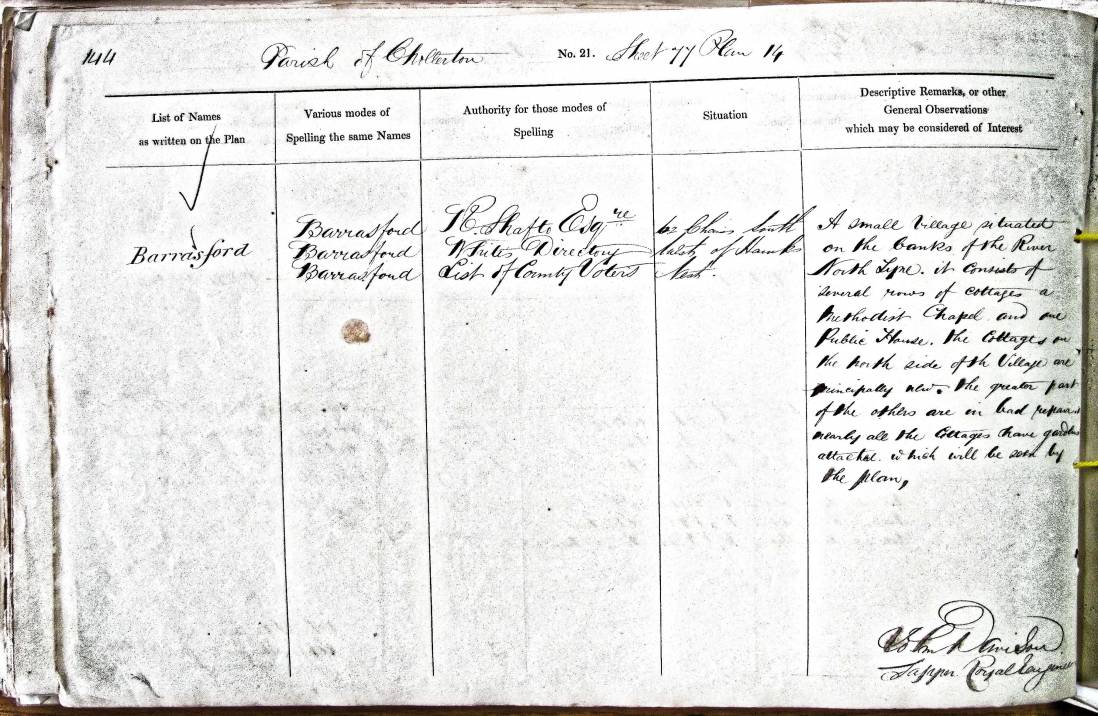 144
Parish of Chollerton No. 21. Sheet 77 Plan 14
List of Names
as written on the Plan
Various modes of
Spelling the same Names
Authority for those modes of
Spelling
Situation
Descriptive Remarks, or other
General Observations
which may be considered of Interest
Barrasford
Barrasford
Barrasford
Barrasford
Shafto Esqre
Whites Directory
List of County Voters
62 Chains South
of Hawks
Nest.
A small Village situated
on the banks of the River
North Tyne. it consists of
several rows of cottages a
Methodist Chapel and one
Public House. the Cottages on
the north side of th Village are
principally new. the greater part
of the others are in bad repair
nearly all the Cottages have gardens
attached. which will be seen by
the plan,
John Davison
Sapper Royal Engineers